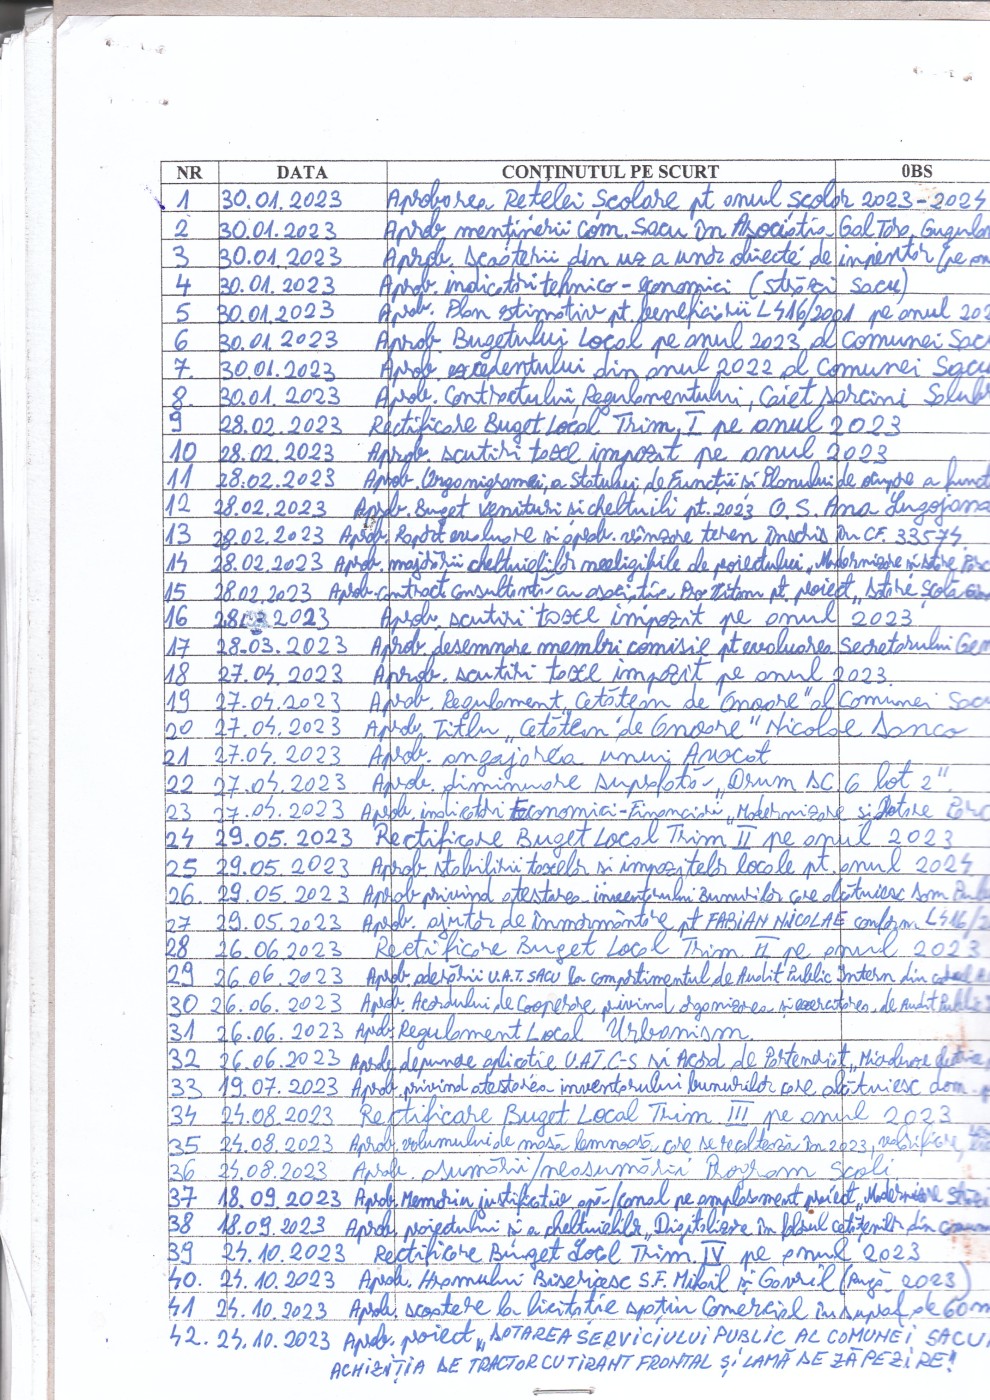 NR DATA CONŢINUTUL PE SCURT 0BS
1 30.01.2023 Aprobarea Retelei Școlare pt anul școlar 2023-2024
2 30.01.2023 Aprob. menținerii Com. Sacu în Asociatia Gal Țara Gugula
3 30.01.2023 Aprob. scoaterii din uz a unor obiecte de inventar pe an
4 30.01.2023 Aprob. indicatori tehnico-economici (străzi Sacu)
5 30.01.2023 Aprob. Plan estimativ pt. beneficiarii L416/2001 pe anul 202
6 30.01.2023 Aprob. Bugetului Local pe anul 2023 al Comunei Sac
7. 30.01.2023 Aprob. excedentului din anul 2022 al Comunei Sacu
8. 30.01.2023 Aprob. Contractului, Regulamentului, Caiet sarcini Salub
9 28.02.2023 Rectificare Buget Local Trim. I pe anul 2023
10 28.02.2023 Aprob. scutiri taxe impozit pe anul 2023
11 28.02.2023 Aprob. Organigramei, a Statului de Funcții si Planului de ocupare a funct
12 28.02.2023 Aprob. Buget venituri si cheltuieli pt. 2023 O.S. Ana Lugojana
13 28.02.2023 Aprob. Raport evaluare si aprob. vânzare teren înscris în CF. 33574
14 28.02.2023 Aprob. majorării cheltuielilor neeligibile ale proiectului „Modernizare si dotare Parc
15 28.02.2023 Aprob. contract consultanta cu asociatia pt. proiect „Dotare Școla
16 28.03.2023 Aprob. scutiri taxe impozit pe anul 2023
17 28.03.2023 Aprob. desemnare membri comisie pt evaluarea Secretarului Gen
18 27.04.2023 Aprob. scutiri taxe impozit pe anul 2023.
19 27.04.2023 Aprob. Regulament „Cetătean de Onoare" al Comunei Sacu
20 27.04.2023 Aprob. Titlu „Cetătean de Onoare" Nicolae Danco
21 27.04.2023 Aprob. angajarea unui Avocat
22 27.04.2023 Aprob. diminuare suprafată „Drum DC 6 lot 2".
23 27.04.2023 Aprob. indicatori Economici-Financiari „Modernizare si Dotare Parc
24 29.05.2023 Rectificare Buget Local Trim II pe anul 2023
25 29.05.2023 Aprob stabilirii taxelor si impozitelor locale pt. anul 2024
26. 29.05.2023 Aprob privind atestarea inventarului bunurilor care alcătuiesc dom Publ
27 29.05.2023 Aprob. ajutor de înmormântare pt FABIAN NICOLAE conform L416/2
28 26.06.2023 Rectificare Buget Local Trim II pe anul 2023
29 26.06.2023 Aprob. aderării U.A.T. SACU la compartimentul de Audit Public Intern din cadrul
30 26.06.2023 Aprob. Acordului de Cooperare privind organizarea si exercitarea de Audit Public
31 26.06.2023 Aprob. Regulament Local Urbanism.
32 26.06.2023 Aprob. depunere aplicatie U.A.T. C-S si Acord de Partenariat
33 19.07.2023 Aprob. privind atestarea inventarului bunurilor care alcătuiesc dom. p
34 24.08.2023 Rectificare Buget Local Trim III pe anul 2023
35 24.08.2023 Aprob. volumului de masă lemnoasă, care se recoltează în 2023, valorificare,
36 24.08.2023 Aprob. asumării/neasumării Program Scoli
37 18.09.2023 Aprob. Memoriu justificativ apă/canal pe amplasament proiect „Modernizare Străzi
38 18.09.2023 Aprob. proiectului si a cheltuielilor „Digitalizare în folosul cetătenilor din comun
39 24.10.2023 Rectificare Buget Local Trim. IV pe anul 2023
40. 24.10.2023 Aprob. Hramului Bisericesc S.F. Mihail si Gavril (Rugă 2023)
41 24.10.2023 Aprob. scoatere la licitatie spatiu Comercial în supraf. de 60 m
42. 24.10.2023 Aprob. proiect „DOTAREA SERVICIULUI PUBLIC AL COMUNEI SACU
ACHIZIȚIA DE TRACTOR CU TIRANT FRONTAL ȘI LAMĂ DE ZĂPEZIRE!